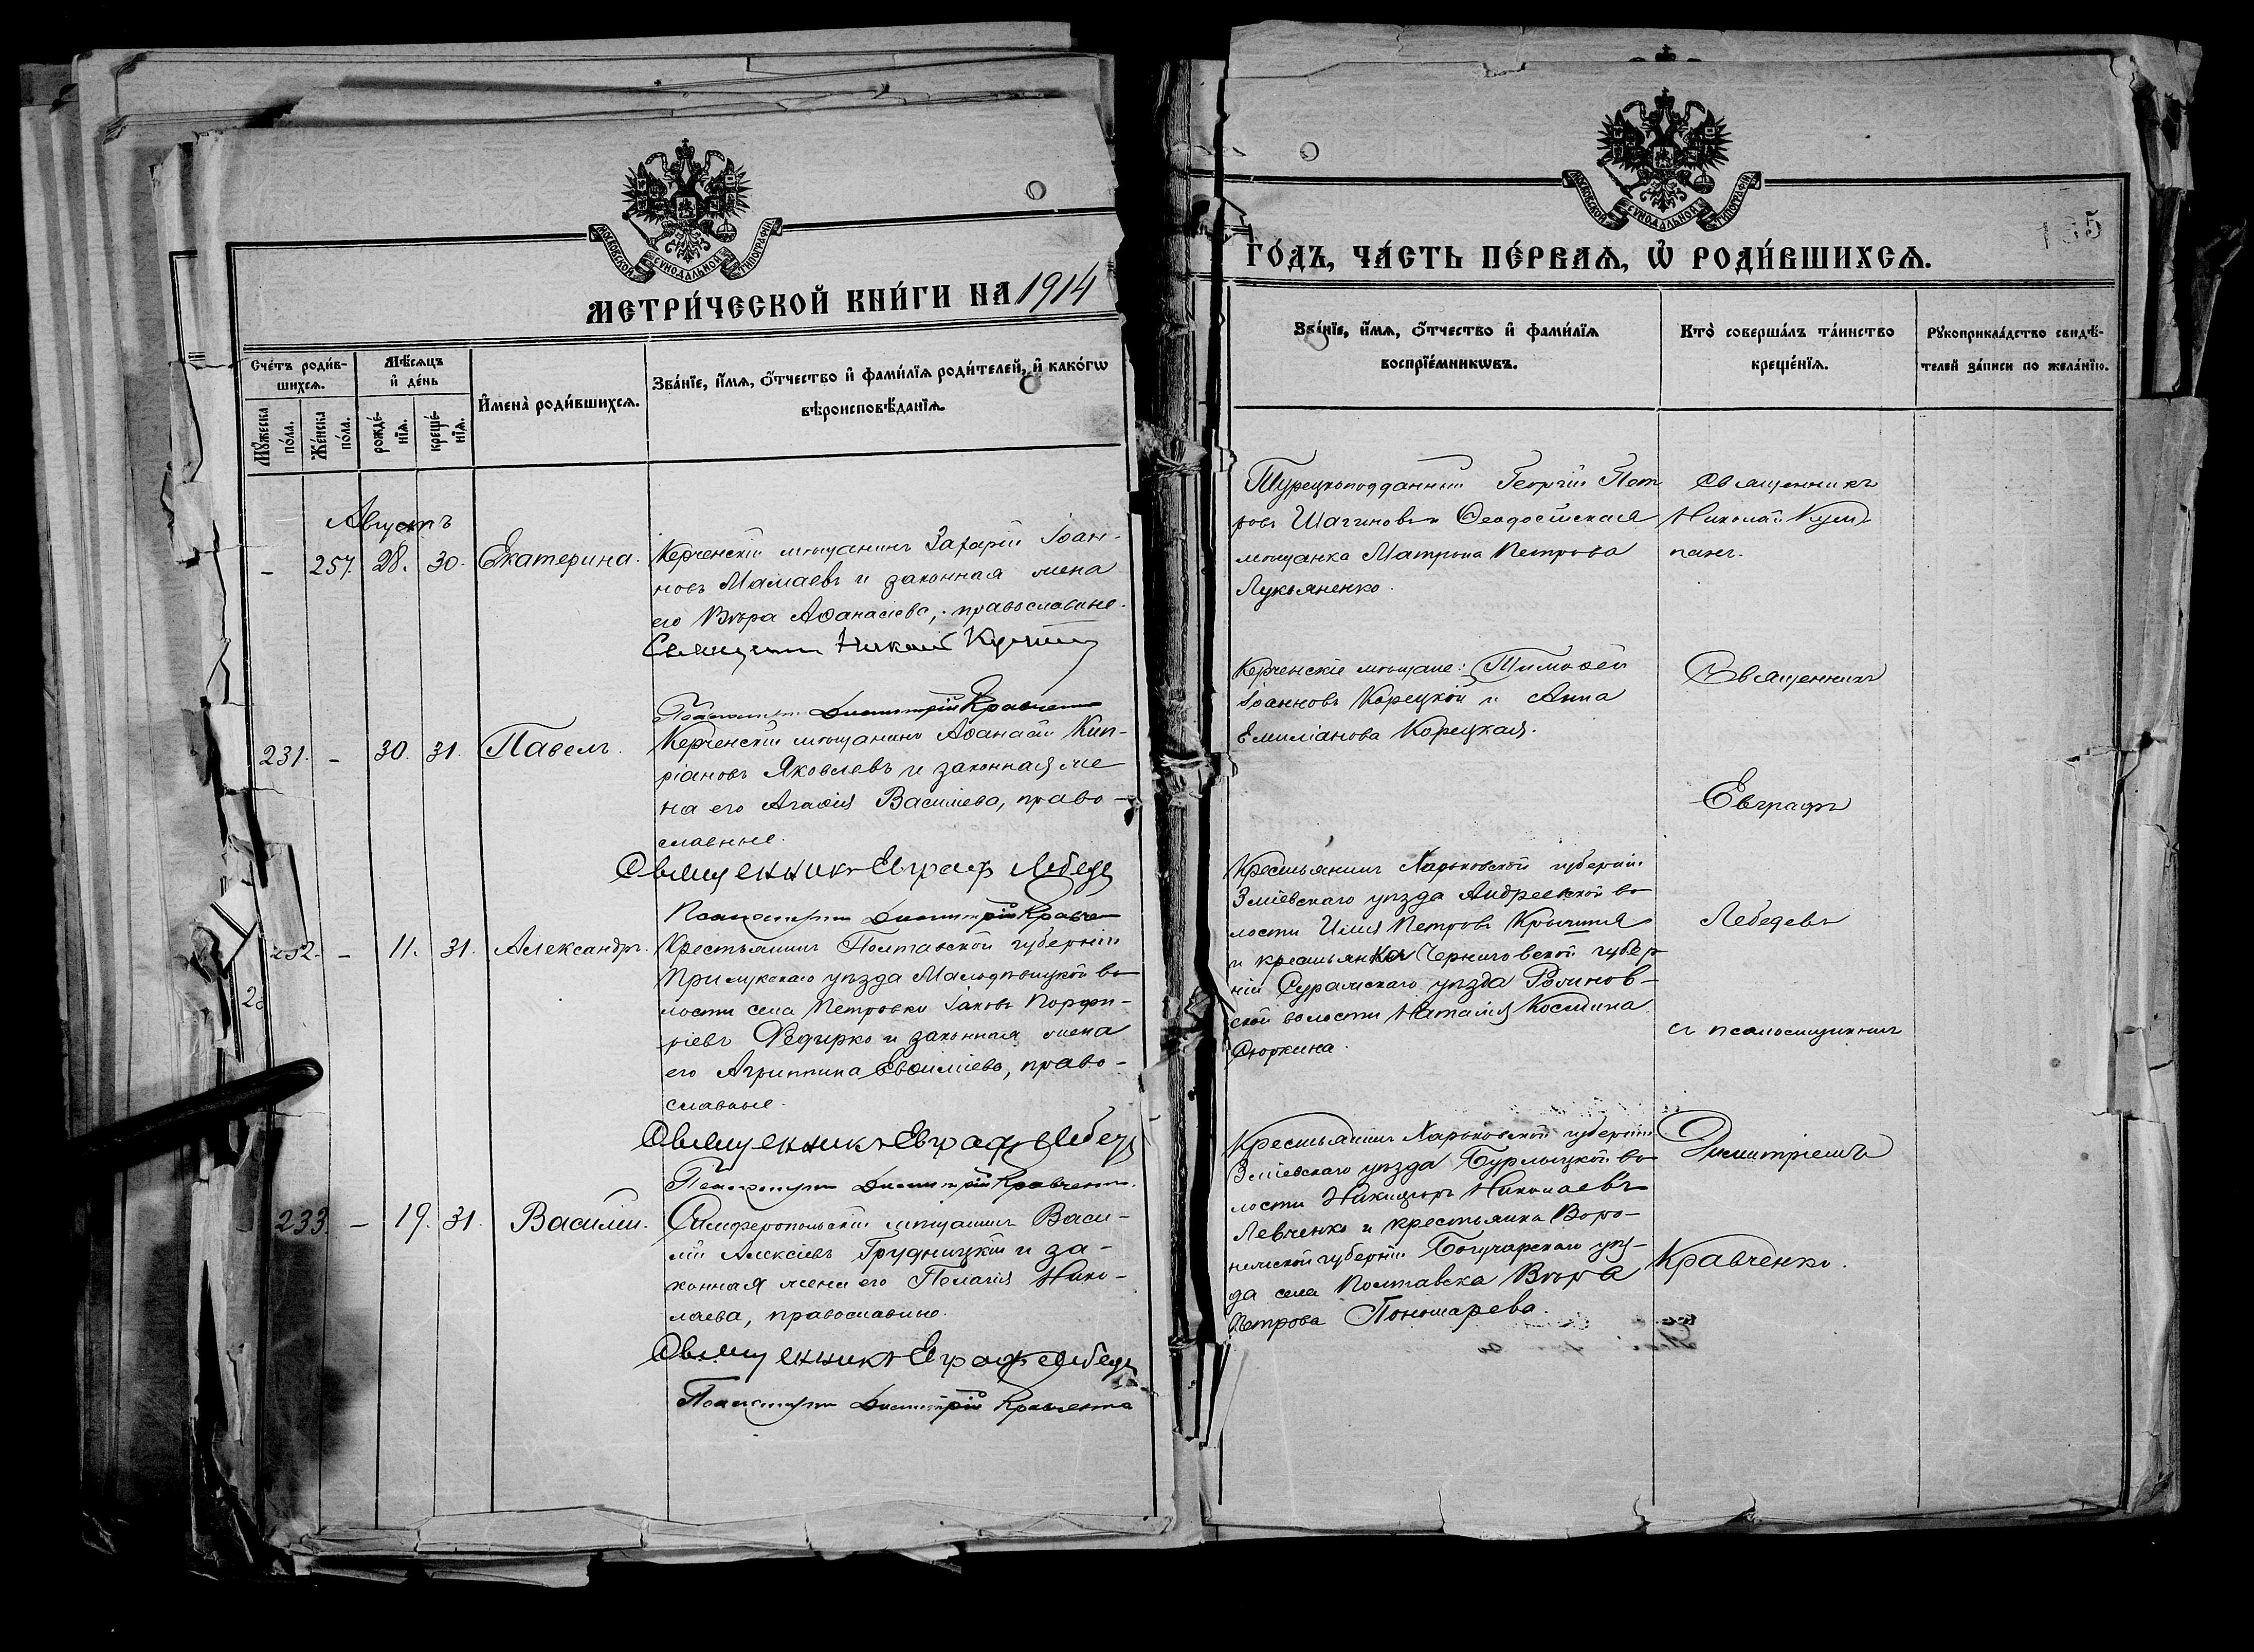 МОСКОВСКОЙ СѴНОДАЛЬНОЙ ТИПОГРАФІИ.
МЕТРИ́ЧЕСКОЙ КНИ́ГИ НА 1914
Сче́тъ роди́в-
шихсѧ.
Мѣ́сѧцъ
и҆ де́нь
Мꙋ́жеска
по́ла.
Же́нска
по́ла.
рожде́-
нїѧ.
креще́-
нїѧ.
И҆мена̀ роди́вшихсѧ.
Зва́нїе, и҆́мѧ, ѻ҆́тчество и҆ фами́лїѧ роди́телей, и҆ како́гѡ
вѣроисповѣ́данїѧ.
Августъ
- 257. 28. 30. Екатерина.
Керченскій мѣщанинъ Захарій Іоан-
новъ Мамаевъ и законная жена
его Вѣра Аѳанасіева, православные.
Священникъ Николай
Псаломщикъ Димитрій Кравченко
231. - 30. 31. Павелъ.
Керченскій мѣщанинъ Аѳанасій Кип-
ріановъ Яковлевъ и законная же
на его Агаѳія Василіева, право-
славные.
Священникъ Евграф Лебеде
Псаломщикъ Димитрій Кравчен
232. - 11. 31. Александръ.
Крестьянинъ Полтавской губерніи
Прилукскаго уѣзда Малодѣвицкой во
лости села Петровки Іаковъ Порфи-
ріевъ Федирко и законная жена
его Агриппина Евѳиміева, право-
славные.
Священникъ Евграф Лебед
Псаломщикъ Димитрій Кравченко.
233. - 19. 31. Василій.
Симферопольскій мѣщанинъ Васи-
лій Алексіевъ Грудницкій и за-
конная жена его Пелагія Нико-
лаева, православные.
Священникъ Евграф Лебеде
Псаломщикъ Димитрій Кравченко
МОСКОВСКОЙ СѴНОДАЛЬНОЙ ТИПОГРАФІИ.
ГО́ДЪ, ЧА́СТЬ ПЕ́РВАѦ, Ѡ҆ РОДИ́ВШИХСѦ.
Зва́нїе, и҆́мѧ, ѻ҆́тчество и҆ фами́лїѧ
воспрїе́мникѡвъ.
Кто̀ соверша́лъ та́инство
креще́нїѧ.
Рꙋкоприкла́дство свидѣ́-
телей за́писи по жела́нїю.
Турецкоподданный Георгій Пет
ровъ Шагиновъ и Ѳеодосійская
мѣщанка Матрона Петрова
Лукьяненко.
Священникъ
Николай
Керченскіе мѣщане: Тимоѳей
Іоанновъ Корецкой и Анна
Емиліанова Корецкая.
Священникъ
Евграфъ
Крестьянинъ Харьковской губерніи
Зміевскаго уѣзда Андреевской во
лости Илія Петровъ
и крестьянка Черниговской губер
ніи Суражскаго уѣзда
ской волости Наталія Космина
Сюркина.
Лебедевъ
съ псаломщикомъ
Крестьянинъ Харьковской губерніи
Зміевскаго уѣзда Бурлуцкой во
лости Никифоръ Николаевъ
Левченко и крестьянка Воро-
нежской губерніи Богучарскаго уѣз-
да села Полтавска Вѣра
Петрова Пономарева.
Димитріемъ
Кравченко.